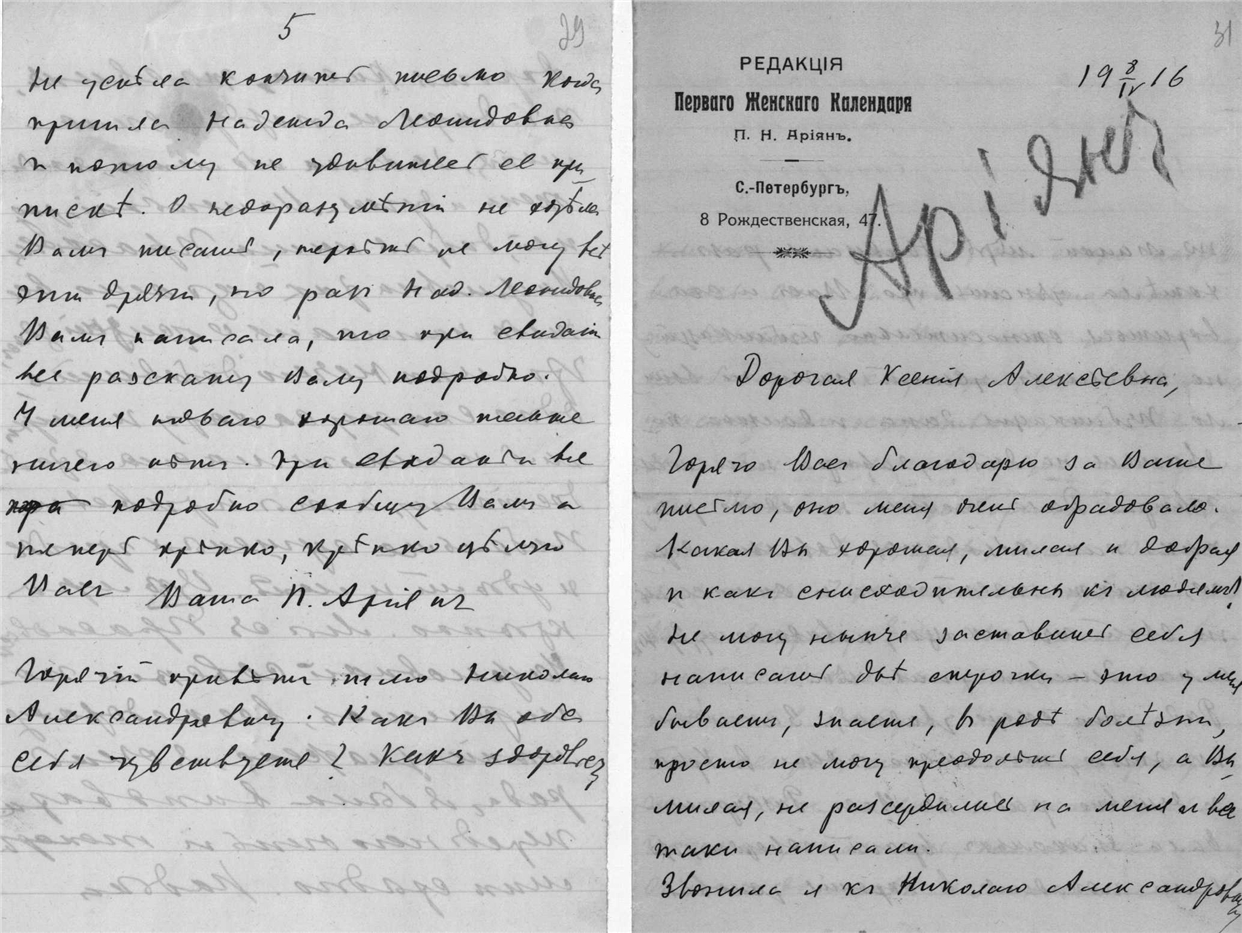 5
29
Не успѣла кончить письмо когда
пришла Надежда Леонидовна
и потому не удивляйтесь ея при-
пискѣ. О недоразумѣніи не хотѣла
Вамъ писать, терпѣть не могу всѣ
эти дрязги, но разъ Над. Леонидовна
Вамъ написала, то при свиданіи
все разскажу Вамъ подробно.
У меня новаго хорошаго также
ничего нѣтъ. При свиданіи все
подробно сообщу Вамъ а
теперь крѣпко, крѣпко цѣлую
Васъ Ваша П. Аріянъ
Горячій привѣтъ шлю Николаю
Александровичу. Какъ Вы оба
себя чувствуете? Какъ здоровье
31
РЕДАКЦІЯ
Перваго Женскаго Календаря
П. Н. Аріянъ.
С.-Петербургъ,
8 Рождественская, 47.
19 8/IV 16
Аріянъ
Дорогая Ксенія Алексѣевна,
Горячо Васъ благодарю за Ваше
письмо, оно меня очень обрадовало.
Какая Вы хорошая, милая и добрая
и какъ снисходительны къ людямъ!
Не могу нынче заставить себя
написать двѣ строчки – это у меня
бываетъ, знаете, въ родѣ болѣзни,
просто не могу преодолѣть себя, а Вы
милая, не разсердились на меня и все
таки написали.
Звонила я къ Николаю Александровичу